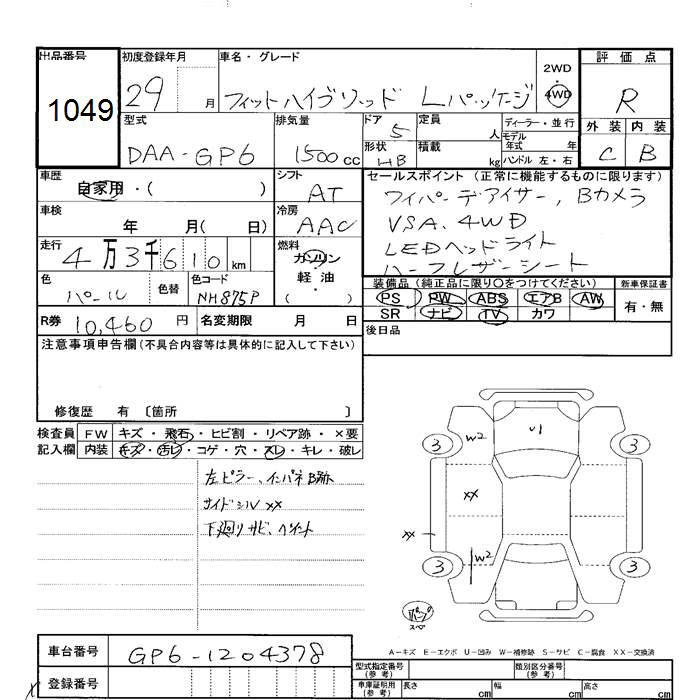 出品番号
1049
初度登録年月
29 月
車名・グレード
フィットハイブリッド Lパッケージ
2WD
4WD
評価点
R
外装 内装
C B
型式
DAA-GP6
排気量
1500 cc
ドア
5
形状
HB
定員
人
積載
kg
ディーラー・並行
モデル年式 年
ハンドル 左・右
車歴
自家用・( )
シフト
AT
車検
年 月( 日)
冷房
AAC
走行
4万3千610 km
燃料
ガソリン
軽油
( )
色
パール
色替
色コード
NH875P
R券 10,460 円
名変期限 月 日
セールスポイント (正常に機能するものに限ります)
ワイパーデアイサー, Bカメラ
VSA. 4WD
LEDヘッドライト
ハーフレザーシート
装備品 (純正品に限り○をつけてください)
PS PW ABS エアB AW
SR ナビ TV カワ
新車保証書
有・無
後日品
注意事項申告欄 (不具合内容等は具体的に記入して下さい)
修復歴 有 〔箇所 〕
検査員 FW キズ・飛石・ヒビ割・リペア跡・×要
記入欄 内装 キズ・汚レ・コゲ・穴・スレ・キレ・破レ
左ピラー、インパネB跡
サイドシル XX
下廻りサビ、ペイント
3 W2 U1 3
XX
XX
3 W2 3
スペア
A-キズ E-エクボ U-凹み W-補修跡 S-サビ C-腐食 XX-交換済
車台番号 GP6-1204378
登録番号
型式指定番号(参考)
類別区分番号(参考)
車庫証明用(参考) 長さ cm 幅 cm 高さ cm